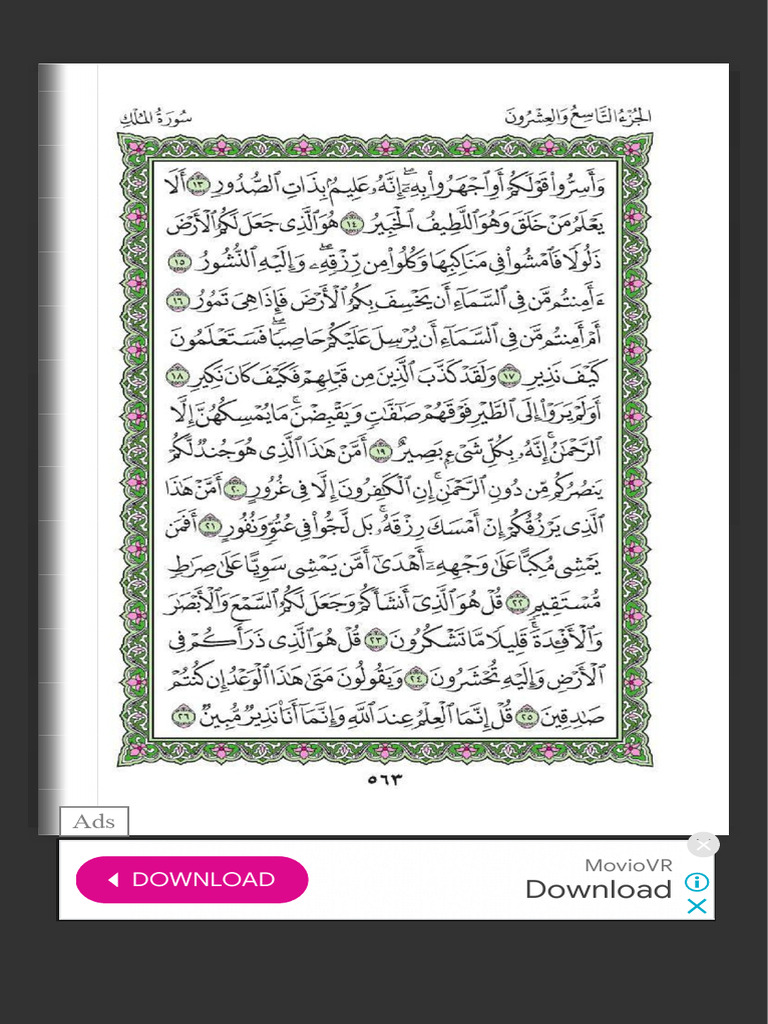 الجزء التاسع والعشرون
سورة الملك
وَأَسِرُّوا۟ قَوْلَكُمْ أَوِ ٱجْهَرُوا۟ بِهِۦٓ ۖ إِنَّهُۥ عَلِيمٌۢ بِذَاتِ ٱلصُّدُورِ ١٣ أَلَا
يَعْلَمُ مَنْ خَلَقَ وَهُوَ ٱللَّطِيفُ ٱلْخَبِيرُ ١٤ هُوَ ٱلَّذِى جَعَلَ لَكُمُ ٱلْأَرْضَ
ذَلُولًا فَٱمْشُوا۟ فِى مَنَاكِبِهَا وَكُلُوا۟ مِن رِّزْقِهِۦ ۖ وَإِلَيْهِ ٱلنُّشُورُ ١٥
ءَأَمِنتُم مَّن فِى ٱلسَّمَآءِ أَن يَخْسِفَ بِكُمُ ٱلْأَرْضَ فَإِذَا هِىَ تَمُورُ ١٦
أَمْ أَمِنتُم مَّن فِى ٱلسَّمَآءِ أَن يُرْسِلَ عَلَيْكُمْ حَاصِبًا ۖ فَسَتَعْلَمُونَ
كَيْفَ نَذِيرِ ١٧ وَلَقَدْ كَذَّبَ ٱلَّذِينَ مِن قَبْلِهِمْ فَكَيْفَ كَانَ نَكِيرِ ١٨
أَوَلَمْ يَرَوْا۟ إِلَى ٱلطَّيْرِ فَوْقَهُمْ صَٰٓفَّٰتٍ وَيَقْبِضْنَ ۚ مَا يُمْسِكُهُنَّ إِلَّا
ٱلرَّحْمَٰنُ ۚ إِنَّهُۥ بِكُلِّ شَىْءٍۭ بَصِيرٌ ١٩ أَمَّنْ هَٰذَا ٱلَّذِى هُوَ جُندٌ لَّكُمْ
يَنصُرُكُم مِّن دُونِ ٱلرَّحْمَٰنِ ۚ إِنِ ٱلْكَٰفِرُونَ إِلَّا فِى غُرُورٍ ٢٠ أَمَّنْ هَٰذَا
ٱلَّذِى يَرْزُقُكُمْ إِنْ أَمْسَكَ رِزْقَهُۥ ۚ بَل لَّجُّوا۟ فِى عُتُوٍّ وَنُفُورٍ ٢١ أَفَمَن
يَمْشِى مُكِبًّا عَلَىٰ وَجْهِهِۦٓ أَهْدَىٰٓ أَمَّن يَمْشِى سَوِيًّا عَلَىٰ صِرَٰطٍ
مُّسْتَقِيمٍ ٢٢ قُلْ هُوَ ٱلَّذِىٓ أَنشَأَكُمْ وَجَعَلَ لَكُمُ ٱلسَّمْعَ وَٱلْأَبْصَٰرَ
وَٱلْأَفْـِٔدَةَ ۖ قَلِيلًا مَّا تَشْكُرُونَ ٢٣ قُلْ هُوَ ٱلَّذِى ذَرَأَكُمْ فِى
ٱلْأَرْضِ وَإِلَيْهِ تُحْشَرُونَ ٢٤ وَيَقُولُونَ مَتَىٰ هَٰذَا ٱلْوَعْدُ إِن كُنتُمْ
صَٰدِقِينَ ٢٥ قُلْ إِنَّمَا ٱلْعِلْمُ عِندَ ٱللَّهِ وَإِنَّمَآ أَنَا۠ نَذِيرٌ مُّبِينٌ ٢٦
٥٦٣
Ads
MovioVR
DOWNLOAD
Download